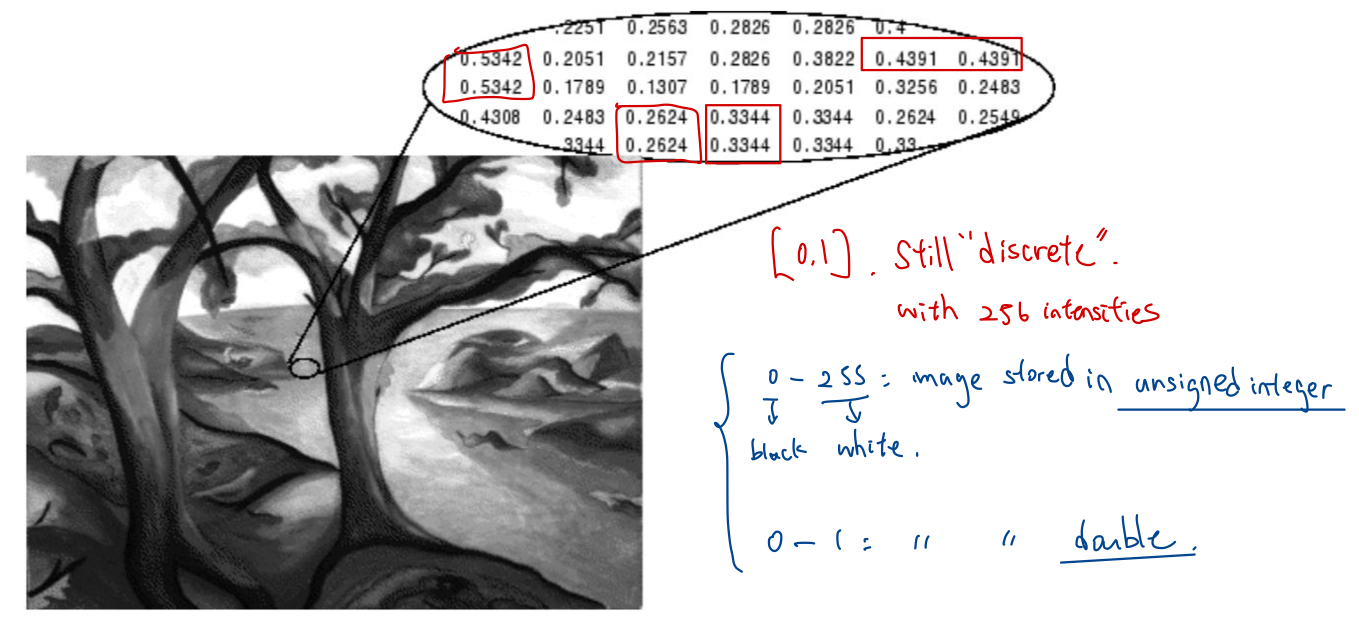 .2251 0.2563 0.2826 0.2826 0.4
0.5342 0.2051 0.2157 0.2826 0.3822 0.4391 0.4391
0.5342 0.1789 0.1307 0.1789 0.2051 0.3256 0.2483
0.4308 0.2483 0.2624 0.3344 0.3344 0.2624 0.2549
.3344 0.2624 0.3344 0.3344 0.33
[0,1]. Still "discrete".
with 256 intensities
0 - 255 : image stored in unsigned integer
black white.
0 - 1 : " " double.